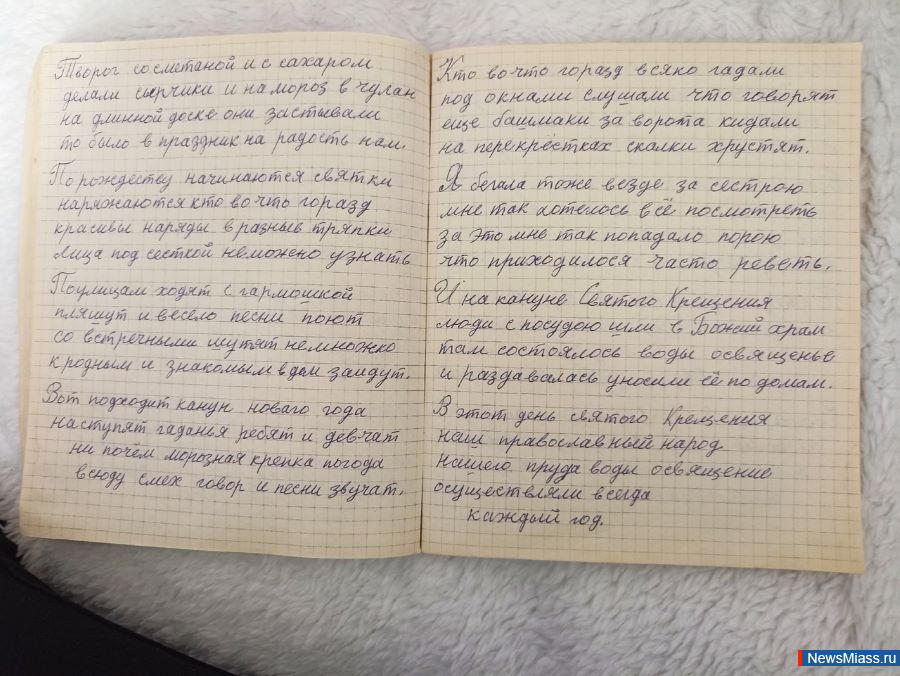 Творог со сметаной и с сахаром
делали сырчики и на мороз в чулан
на длинной доске они застывали
то было в праздник на радость нам.
По рождеству начинаются святки
наряжаются кто во что горазд
красивы наряды в разные тряпки
лица под сеткой неможно узнать
По улицам ходят с гармошкой
пляшут и весело песни поют
со встречными шутят немножко
к родным и знакомым в дом зайдут.
Вот подходит канун новаго года
наступят гаданья ребят и девчат
ни почём морозная крепка погода
всюду смех говор и песни звучат.
Кто во что горазд всяко гадали
под окнами слушали что говорят
еще башмаки за ворота кидали
на перекрёстках скалки хрустят.
Я бегала тоже везде за сестрою
мне так хотелось всё посмотреть
за это мне так попадало порою
что приходилося часто реветь.
И на кануне Святого Крещения
люди с посудою шли в Божий храм
там состоялось воды освященье
и раздавалась уносили её по домам.
В этот день святого Крещения
наш православный народ
нашего пруда воды освящение
осуществляли всегда
каждый год.
NewsMiass.ru